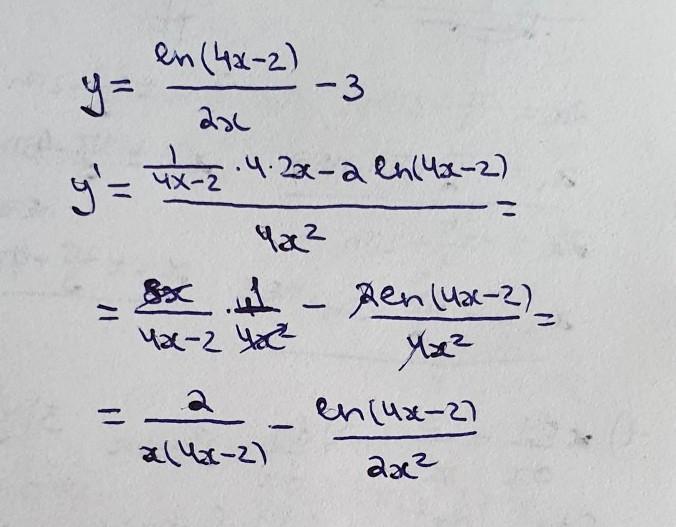 y = ln(4x-2)/2x - 3
y' = (1/(4x-2) · 4 · 2x - 2 ln(4x-2))/4x² =
= 8x/(4x-2) · 1/4x² - 2ln(4x-2)/4x² =
= 2/(x(4x-2)) - ln(4x-2)/2x²